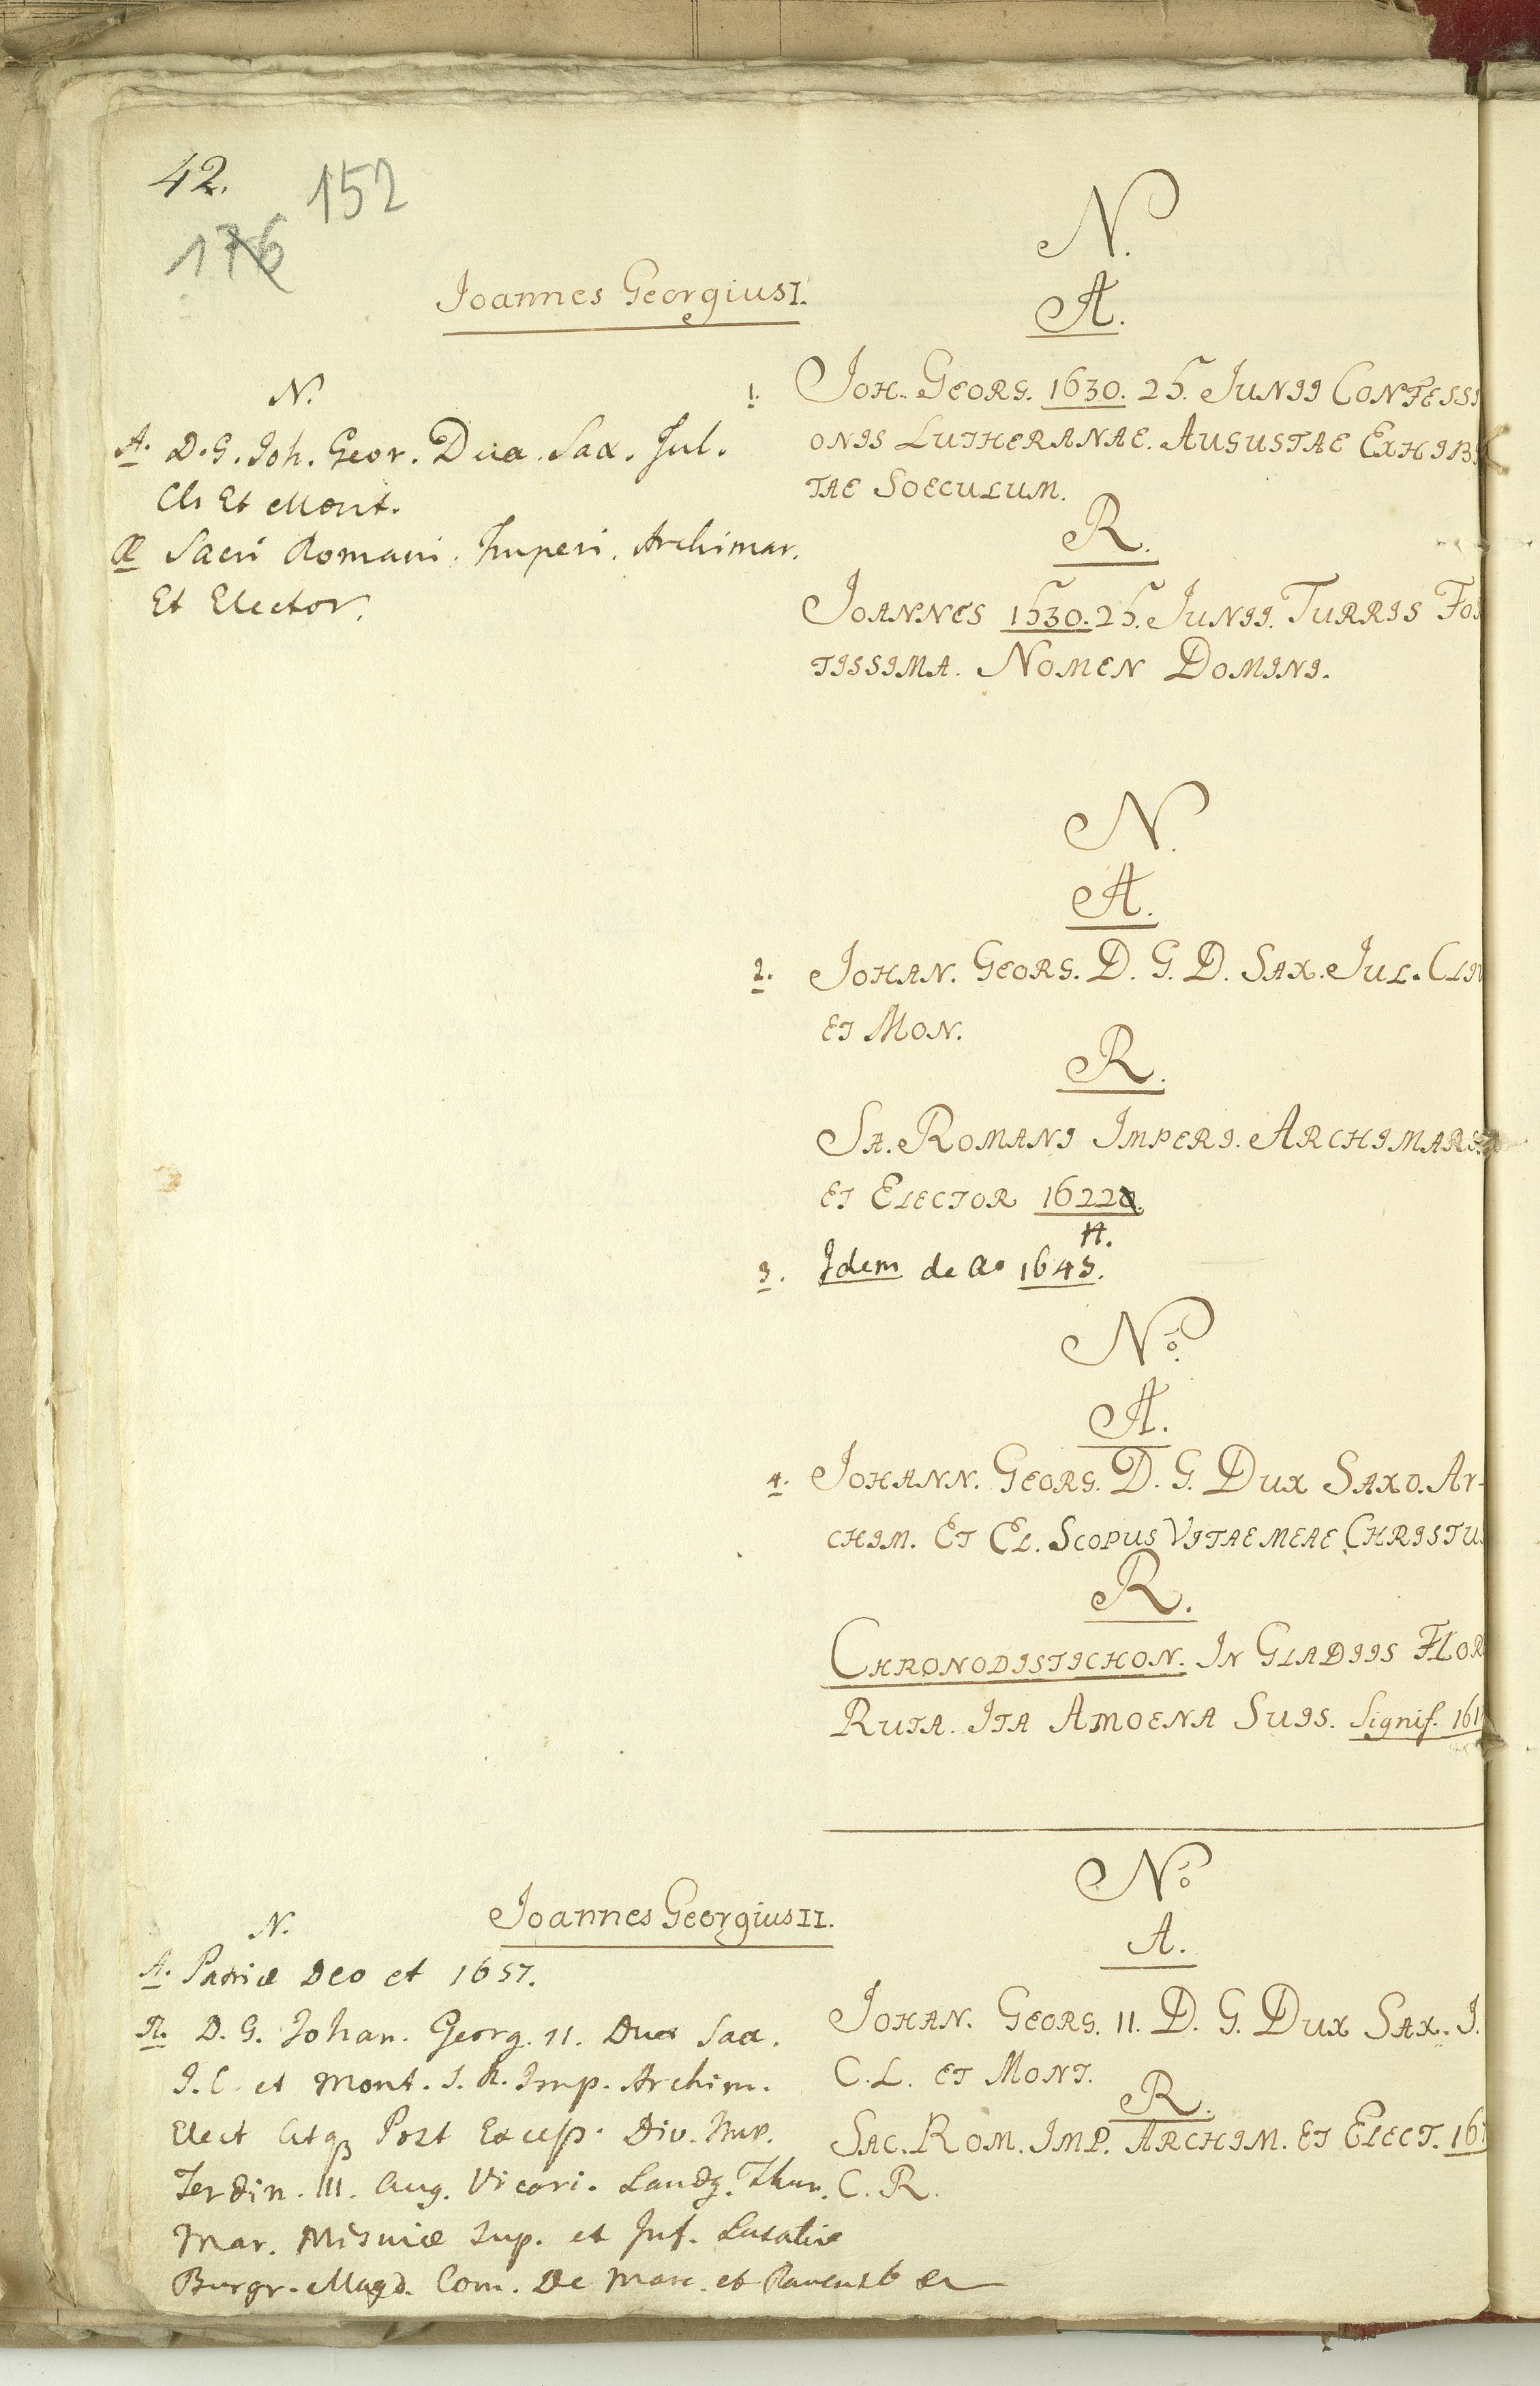 42.
152
176
Joannes Georgius I.
N.
A. D. G. Joh. Geor. Dux. Sax. Jul.
Cli Et Mont.
R Sacri Romani. Imperi. Archimar.
Et Elector.
N.
A.
1. Joh. Georg. 1630. 25. Junii Confessi
onis Lutheranae. Augustae Exhibi
tae Soeculum.
R.
Joannes 1530. 25. Junii. Turris For
tissima. Nomen Domini.
N.
A.
2. Johan. Georg. D. G. D. Sax. Jul. Cliv
et Mon.
R.
Sa. Romani Imperi. Archimars.
et Elector 1622
A.
3. Idem de ao 1645.
No.
A.
4. Johann. Georg. D. G. Dux Saxo. Ar-
chim. Et El. Scopus Vitae meae Christus
R.
Chronodistichon. In Gladiis Flor
Ruta. Ita Amoena Suis. Signif. 161
Joannes Georgius II.
N.
A. Patriæ Deo et 1657.
R. D. G. Johan. Georg. II. Dux Sax.
J. C. et Mont. S. R. Imp. Archim.
Elect Atqz Post Excess. Div. Imp.
Ferdin. III. Aug. Vicari. Landg. Thur.
Mar. Misniæ Sup. et Inf. Lusatiæ
Burgr. Magd. Com. De Marc. et Ravensb
No
A.
Johan. Georg. II. D. G. Dux Sax. J.
C. L. et Mont.
R.
Sac. Rom. Imp. Archim. et Elect. 16
C. R.